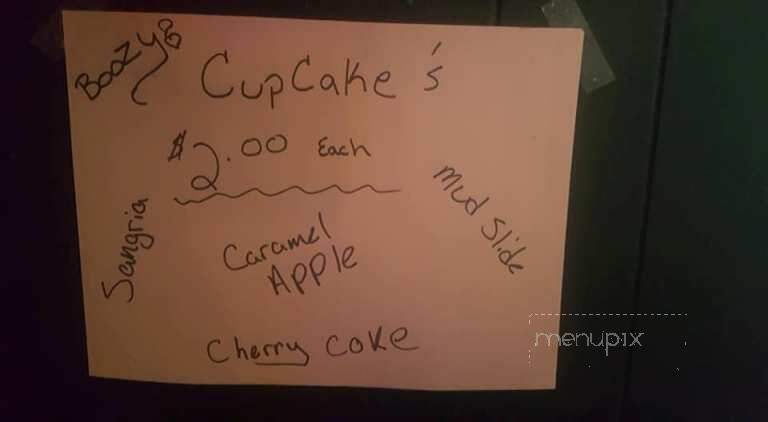 Boozy
CupCake's
$2.00 Each
Mud Slide
Sangria
Caramel
Apple
Cherry Coke
menupix